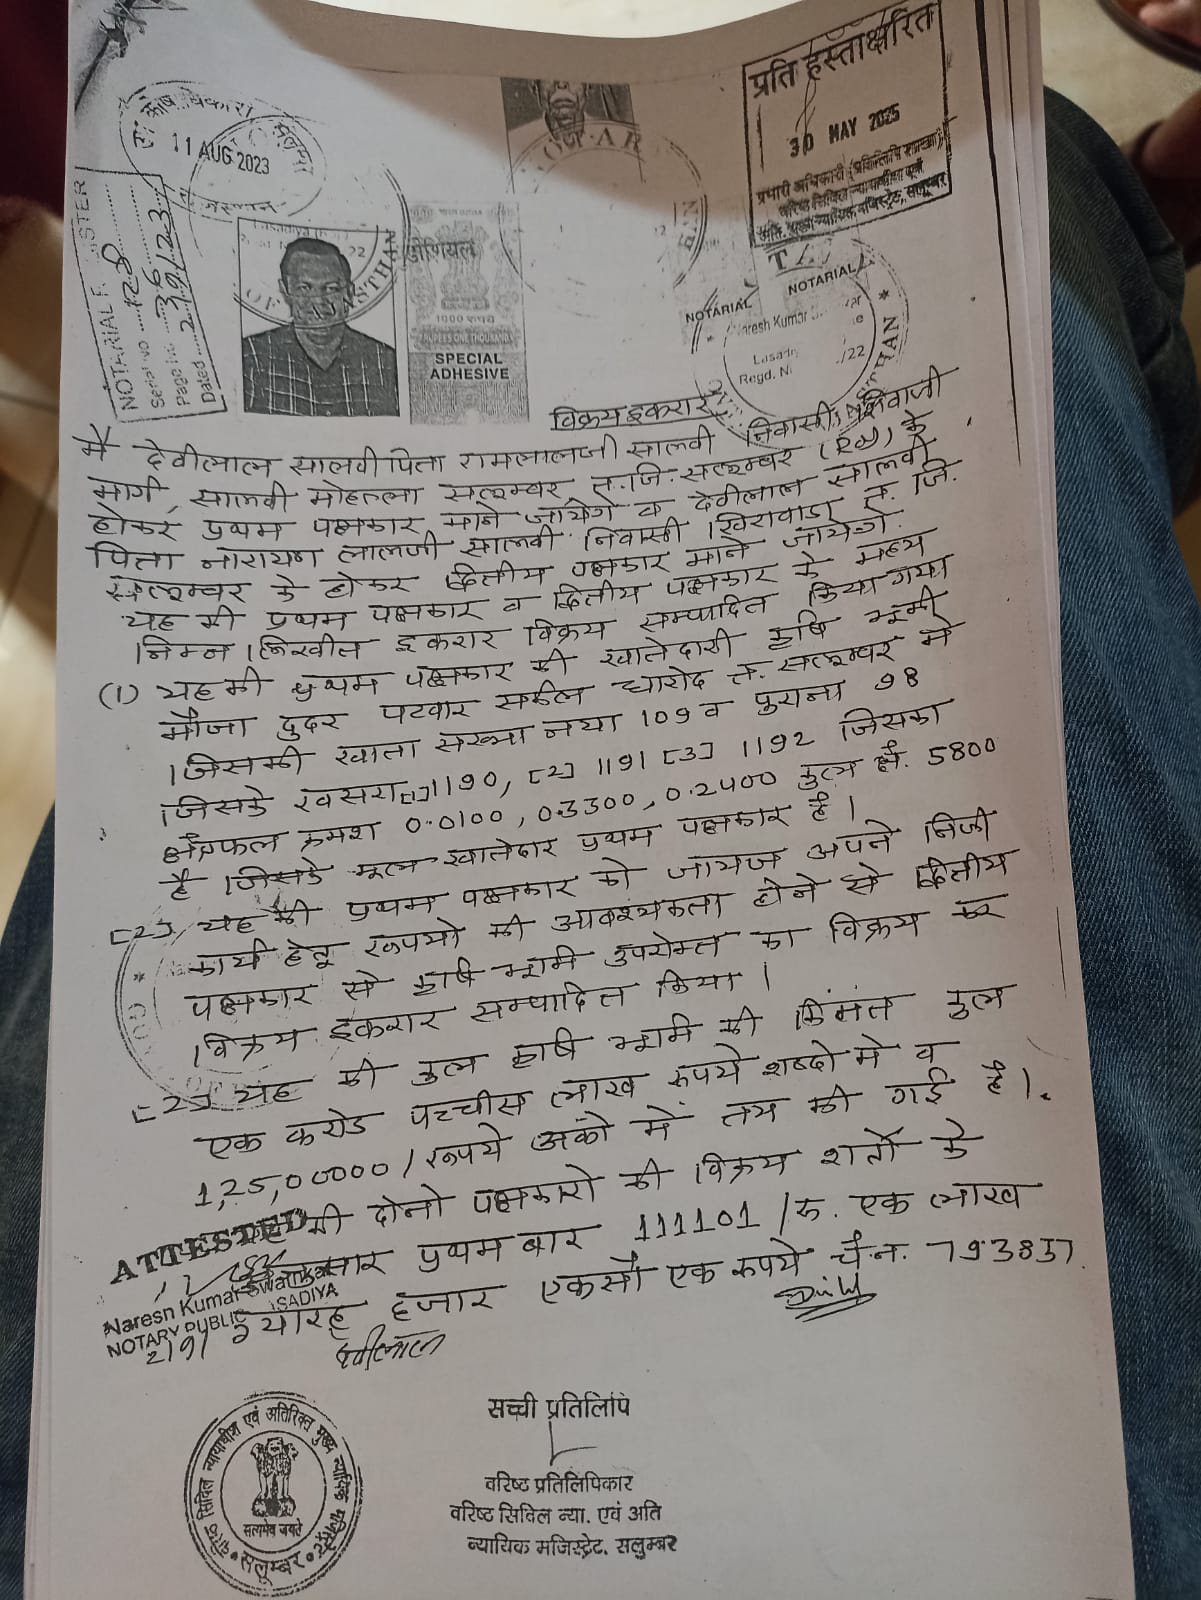 प्रति हस्ताक्षरित
30 MAY 2025
प्रभारी अधिकारी (प्रतिलिपि शाखा)
वरिष्ठ सिविल न्यायाधीश एवं
अति. मुख्य न्यायिक मजिस्ट्रेट, सलूम्बर
11 AUG 2023
NOTARIAL REGISTER
Serial No
Page No. 36
Dated 2/9/23
1000 रुपये
RUPEES ONE THOUSAND
SPECIAL
ADHESIVE
NOTARIAL
NOTARIAL
Naresh Kumar
Lasadiya
Regd. N 22
विक्रय इकरार
मै देवीलाल सालवी पिता रामलालजी सालवी निवासी शिवाजी
मार्ग, सालवी मोहल्ला सलूम्बर त.जि. सलूम्बर (राज) के
होकर प्रथम पक्षकार माने जायेगे व देवीलाल सालवी
पिता नारायण लालजी सालवी निवासी खिरावाडा त. जि.
सलूम्बर के होकर द्वितीय पक्षकार माने जायेगे.
यह की प्रथम पक्षकार व द्वितीय पक्षकार के मध्य
निम्न लिखीत इकरार विक्रय सम्पादित किया गया
(1) यह की प्रथम पक्षकार की खातेदारी कृषि भूमी
मौजा दुदर पटवार सर्कल धारोद त. सलूम्बर मे
जिसकी खाता सख्या नया 109 व पुराना 98
जिसके खसरा [1] 1190, [2] 1191 [3] 1192 जिसका
क्षैत्रफल क्रमश 0.0100, 0.3300, 0.2400 कुल है. 5800
है जिसके मूल खातेदार प्रथम पक्षकार है।
[2] यह की प्रथम पक्षकार को जायज अपने निजी
कार्य हेतू रूपयो की आवश्यकता होने से द्वितीय
पक्षकार से कृषि भूमी उपरोक्त का विक्रय कर
विक्रय इकरार सम्पादित किया।
[2] यह की कुल कृषि भूमि की किंमंत कुल
एक करोड पच्चीस लाख रुपये शब्दो मे व
1,25,00000/ रूपये अंको में तय की गई है।
की दोनो पक्षकारो की विक्रय शर्तो के
अनुसार प्रथम बार 111101/रु. एक लाख
ग्यारह हजार एकसौ एक रूपये चै.न. 793837
ATTESTED
Naresh Kumar Swarnkar
NOTARY PUBLIC LASADIYA
2/9/
देवीलाल
सच्ची प्रतिलिपि
वरिष्ट प्रतिलिपिकार
वरिष्ट सिविल न्या. एवं अति
न्यायिक मजिस्ट्रेट, सलुम्बर
वरिष्ठ सिविल न्यायाधीश एवं अतिरिक्त मुख्य न्यायिक मजिस्ट्रेट
सत्यमेव जयते
सलूम्बर